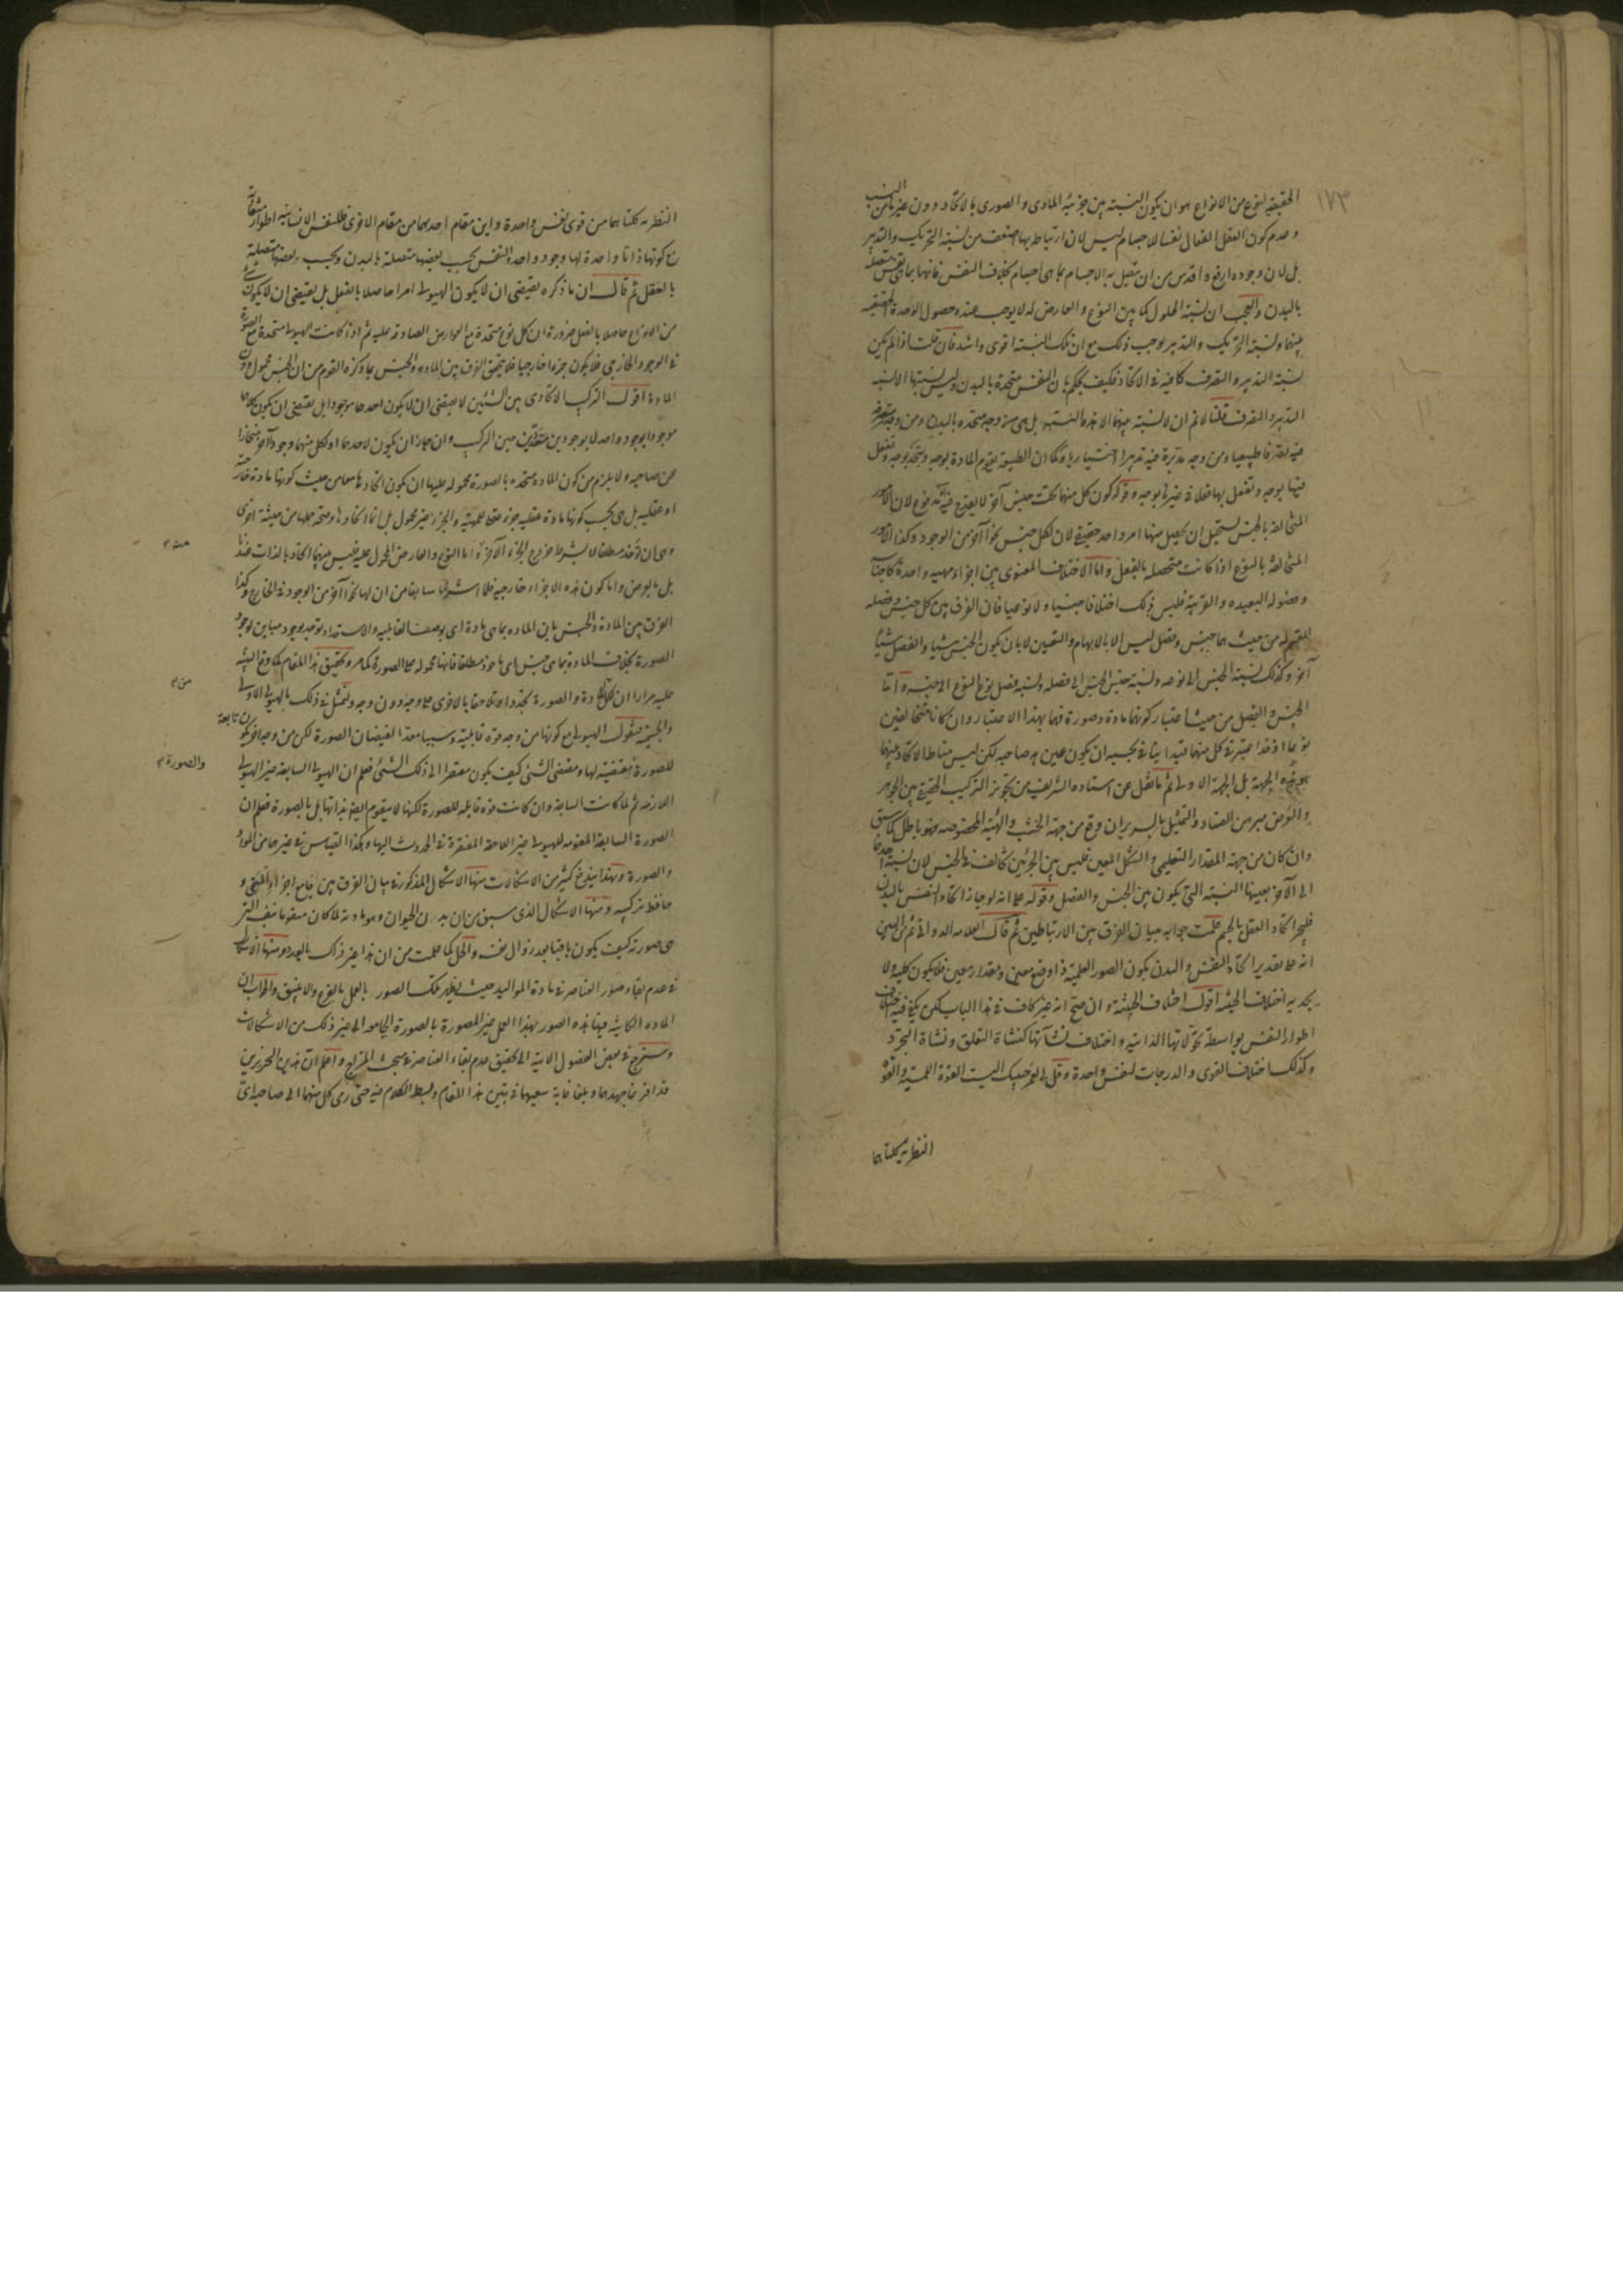 ١٧٣
الحقيقية لنوع من الانواع هو ان يكون النسبة بين جزئيه المادى والصورى بالاتحاد دون غيرها من النسب
وعدم كون العقل الفعال نفسا للاجسام ليس لان ارتباطه بها اضعف من نسبة التحريك والتدبير
بل لان وجوده ارفع واقدس من ان يتصل به الاجسام بما هى اجسام بخلاف النفس فانها بما هى نفس متصلة
بالبدن والعجب ان نسبة الحلول كما بين النوع والعارض له لا يوجب عنده حصول الوحدة الحقيقية
بينهما ونسبة التحريك والتدبير يوجب ذلك مع ان تلك النسبة اقوى واشد فان قلت اذا لم يكن
نسبة التدبير والتصرف كافية فى الاتحاد فكيف يحكم بان النفس متحدة بالبدن وليس نسبتها الا نسبة
التدبير والتصرف قلنا لا نم ان لا نسبة بينهما الا هذه النسبة بل هى من وجه متحده بالبدن ومن وجه متصرفة
فيه تصرفا طبيعيا ومن وجه مدبرة فيه تدبيرا اختياريا وكما ان الطبيعة تقوم المادة بوجه وتتحد بوجه وتفعل
فيها بوجه وتفعل بها فعلا فى غيرها بوجه وقد كون كل منهما تحت جنس آخر لا يقدح فيه لان الامور
المتخالفة بالجنس يستحيل ان يحصل منها امر واحد حقيقى لان لكل جنس نحوا آخر من الوجود وكذا الامور
المتخالفة بالنوع اذا كانت متحصلة بالفعل واما الاختلاف المعنوى بين اجزاء مهيه واحدة كاجناسها
وفصوله البعيده والقريبة فليس ذلك اختلافا جنسيا ولا نوعيا فان الفرق بين كل جنس وفصله
المقسم له من حيث هما جنس وفصل ليس الا بالابهام والتعيين لا بان يكون الجنس شيئا والفصل شيئا
آخر وكذلك نسبة الجنس الى نوعه ونسبة جنس الجنس الى فصله ونسبة فصل نوع النوع الى جنسه واما
الجنس والفصل من حيث اعتبار كونهما مادة وصورة فهما بهذا الاعتبار وان كانا متخالفين
نوعا اذ قد اعتبر فى كل منهما قيد اينافى بحسبه ان يكون عين صاحبه لكن ليس مناط الاتحاد بينهما
هو هذه الجهة بل الجهة الاولى ثم ما نقل عن استاده الشريف من تجويز التركيب الحقيقى بين الجوهر
والعرض مبرهن الفساد والتمثيل بالسرير ان وقع من جهة الخشب والهيئة المخصوصه فهو باطل كما سبق
وان كان من جهة المقدار التعليمى والشكل المعين فليس بين الجزئين تخالف فى الجنس لان نسبة احدهما
الى الآخر بعينها النسبة التى يكون بين الجنس والفصل وقوله على انه لو جاز اتحاد النفس بالبدن
فليجز اتحاد العقل بالجسم علمت جوابه ببيان الفرق بين الارتباطين ثم قال العلامه الدوانى ثم من البين
انه على تقدير اتحاد النفس والبدن يكون الصور العلمية ذا وضع معين ومقدار معين فلا يكون كلية ولا
يجد به اختلاف الحيثية اقول اختلاف الحيثية وان صح انه غير كاف فى هذا الباب لكن يكفى فيه اختلاف
اطوار النفس بواسطة تحولاتها الذاتية واختلاف نشآتها كنشاة التعلق ونشاة التجرد
وكذلك اختلاف القوى والدرجات لنفس واحدة وقل لى ايها الحبيب اليست القوة اللمسية والقوة
النظرية كلتاهما
النظريه كلتاهما من قوى نفس واحدة واين مقام احدهما من مقام الاخرى فللنفس الانسانية اطوار متفاوتة
مع كونها ذاتا واحدة لها وجود واحد والنفس بحسب بعضها متصلة بالبدن وبحسب بعضها متصلة
بالعقل ثم قال ان ما ذكره يقتضى ان لا يكون الهيولى امرا حاصلا بالفعل بل يقتضى ان لا يكون شئ
من الانواع حاصلا بالفعل ضرورة ان كل نوع متحدة مع العوارض الصادقة عليه ثم اذا كانت الهيولى متحدة مع الصورة
فى الوجود الخارجى فلا يكون جزءا خارجيا فلا يتحقق الفرق بين المادة والجنس بما ذكره القوم من ان الجنس محمول دون
المادة اقول التركيب الاتحادى بين الشيئين لا يقتضى ان لا يكون احدهما موجودا بل يقتضى ان يكون كلاهما
موجودا بوجود واحد لا بوجودين متعددين حين التركيب وان جاز ان يكون لاحدهما او لكل منهما وجود آخر منحازا
عن صاحبه ولا يلزم من كون المادة متحده بالصورة محموله عليها ان يكون اتحادهما من حيث كونها مادة خارجية
او عقليه بل هى بحسب كونها مادة عقليه جزء عقلى للمهيّه والجزء غير محمول بل انما اتحادها وصحه حملها من حيثية اخرى
وهى ان تؤخذ مطلقا لا بشرط خروج الجزء الآخر واما النوع والعارض المحمول عليه فليس بينهما اتحاد بالذات عندنا
منه ٢
بل بالعرض واما كون هذه الاجزاء خارجية فلما اشرنا سابقا من ان لها نحوا آخر من الوجود فى الخارج وكذا
الفرق بين المادة والجنس بان المادة بما هى مادة اى بوصف القابلية والاستعداد توجد بوجود مباين لوجود
الصورة بخلاف المادة بما هى جنس اى ماخوذ مطلقا فانها محموله على الصورة كما مر وتحقيق هذا المقام كما وقع التنبيه
عليه مرارا ان لكل من المادة والصورة تجددا وتلاحقا بالاخرى على وجه دون وجه ولنمثل فى ذلك بالهيولى الاولى
والجسمية فنقول الهيولى مع كونها من وجه قوة قابلية وسببا معدا لفيضان الصورة لكن من وجه آخر يكون تابعة
للصورة مقتضية لها ومقتضى الشئ كيف يكون مفتقرا الى ذلك الشئ فعلم ان الهيولى السابقة غير الهيولى
والصورة ٢
اللازمه ثم لما كانت السابقة وان كانت قوة قابله للصورة لكنها لا يتقوم ايضه بذاتها بل بالصورة فعلم ان
الصورة السابقة المقومه للهيولى غير اللاحقة المفتقرة فى الحدوث اليها وهكذا القياس فى غيرهما من المواد
والصورة وبهذا يندفع كثير من الاشكالات منها الاشكال المذكور فى بيان الفرق بين جامع اجزاء المنى و
حافظ تركيبه ومنها الاشكال الذى سبق من ان بدن الحيوان وهو مادته لما كان متقوما بنفسه التى
هى صورته كيف يكون باقيا بعد زوال نفسه والحل كما علمت من ان هذا غير ذاك بالعدد ومنها الاشكال
فى عدم بقاء صور العناصر فى مادة المواليد حيث يظهر تلك الصور بالعمل بالقرع والانبيق والجواب ان
المادة الكائنة فيها هذه الصور بهذا العمل غير المصورة بالصورة الجامعه الى غير ذلك من الاشكالات
وسنرجع فى بعض الفصول الاتية الى تحقيق عدم بقاء العناصر فى مبحث المزاج واعلم ان هذين النحريرين
قد افرغا جهدهما وبلغا غاية سعيهما فى تبيين هذا المقام وبسط الكلام فيه حتى رمى كل منهما الى صاحبه اى